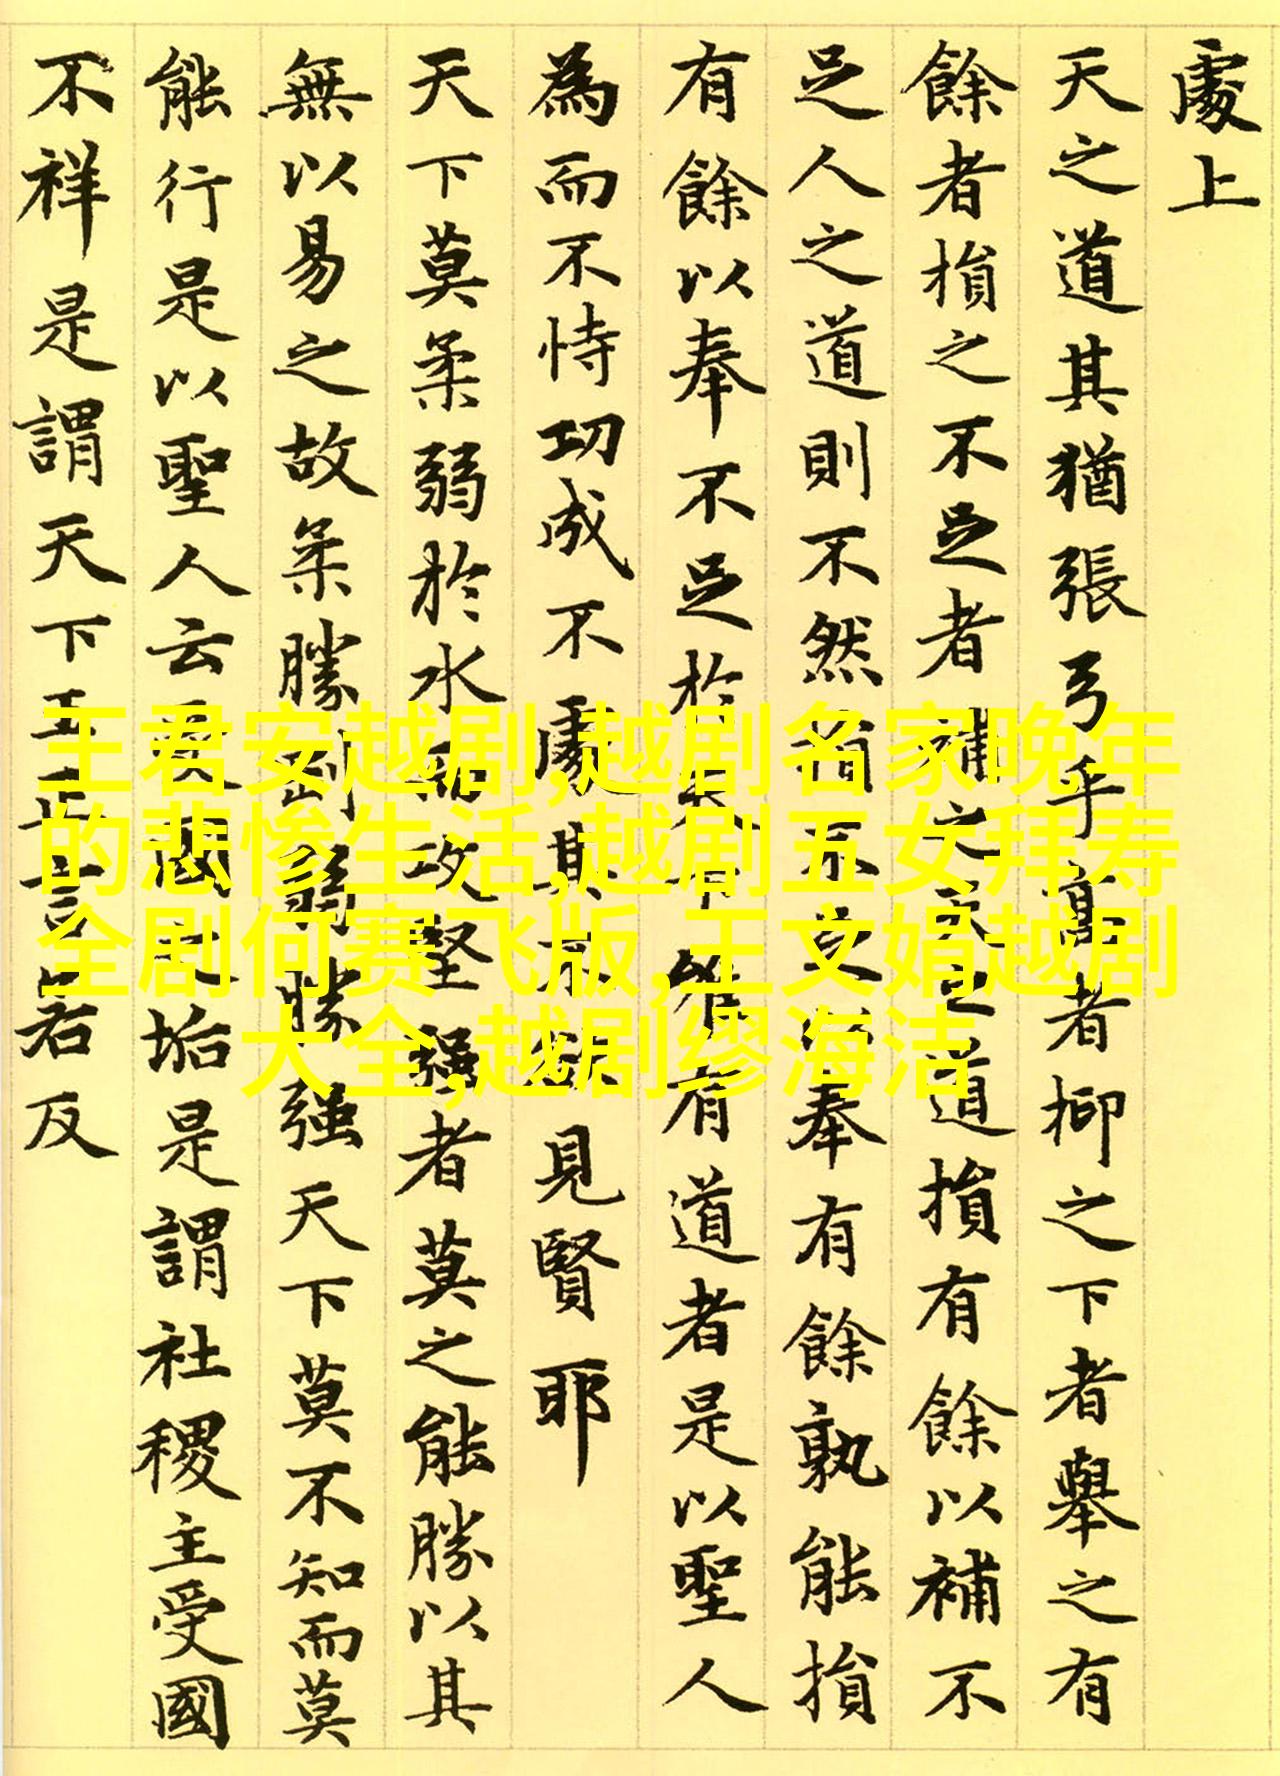 處上
天之道其猶張弓乎高者抑之下者舉之有
餘者損之不足者補之天之道損有餘以補不
足人之道則不然損不足以奉有餘孰能損
有餘以奉不足於天下唯有道者是以聖人
為而不恃功成不處其不欲見賢耶
天下莫柔弱於水而攻堅强者莫之能勝以其
無以易之故柔勝剛弱勝强天下莫不知而莫
能行是以聖人云受國之垢是謂社稷主受國
不祥是謂天下王正言若反
王君安越剧,越剧名家晚年
的悲惨生活,越剧五女拜寿
全剧何赛飞版,王文娟越剧
大全,越剧缪海洁